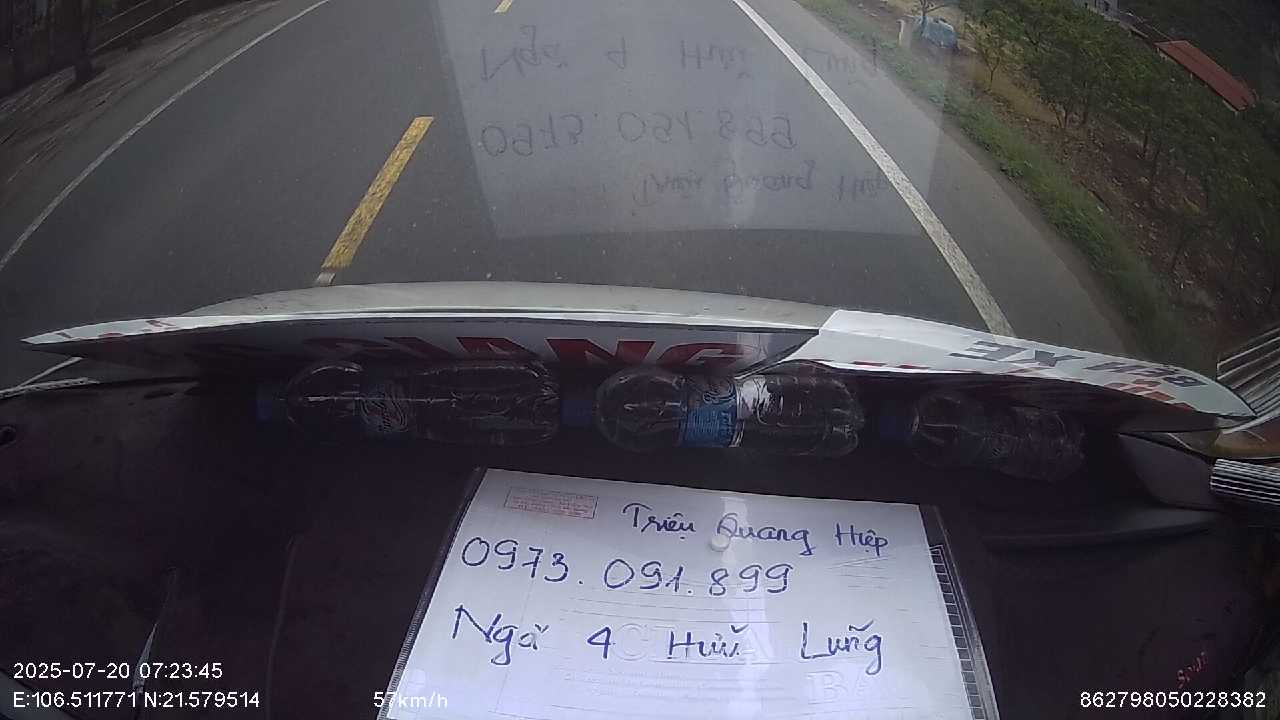 GIANG
BẾN XE
Triệu Quang Hiệp
0973.091.899
Ngã 4 Hữu Lũng
2025-07-20 07:23:45
E:106.511771 N:21.579514
57km/h
862798050228382